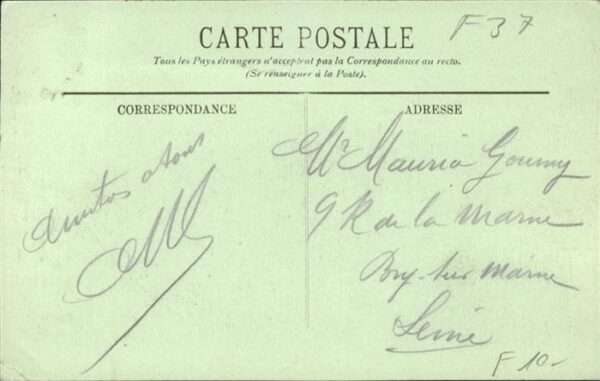 F 37
CARTE POSTALE
Tous les Pays étrangers n'acceptent pas la Correspondance au recto.
(Se renseigner à la Poste).
CORRESPONDANCE
ADRESSE
Amitiés a tous
Mr Maurice Goumy
9 R de la Marne
Bry-sur Marne
Seine
F 10-